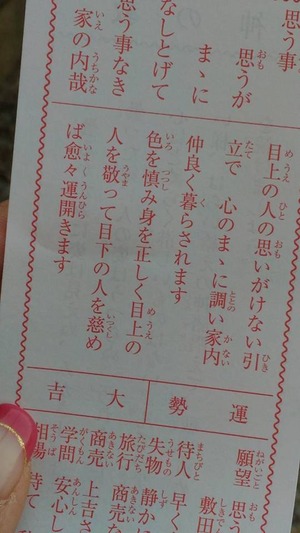 思う事
思うが
まゝに
なしとげて
思う事なき
家の内哉
目上の人の思いがけない引
立で 心のまゝに調い家内
仲良く暮らされます
色を慎み身を正しく目上の
人を敬って目下の人を慈め
ば愈々運開きます
運勢
大吉
願望 思う
敷田
待人 早く
失物 静か
旅行
商売 商売
学問 上吉さ
相場 安心し
待て